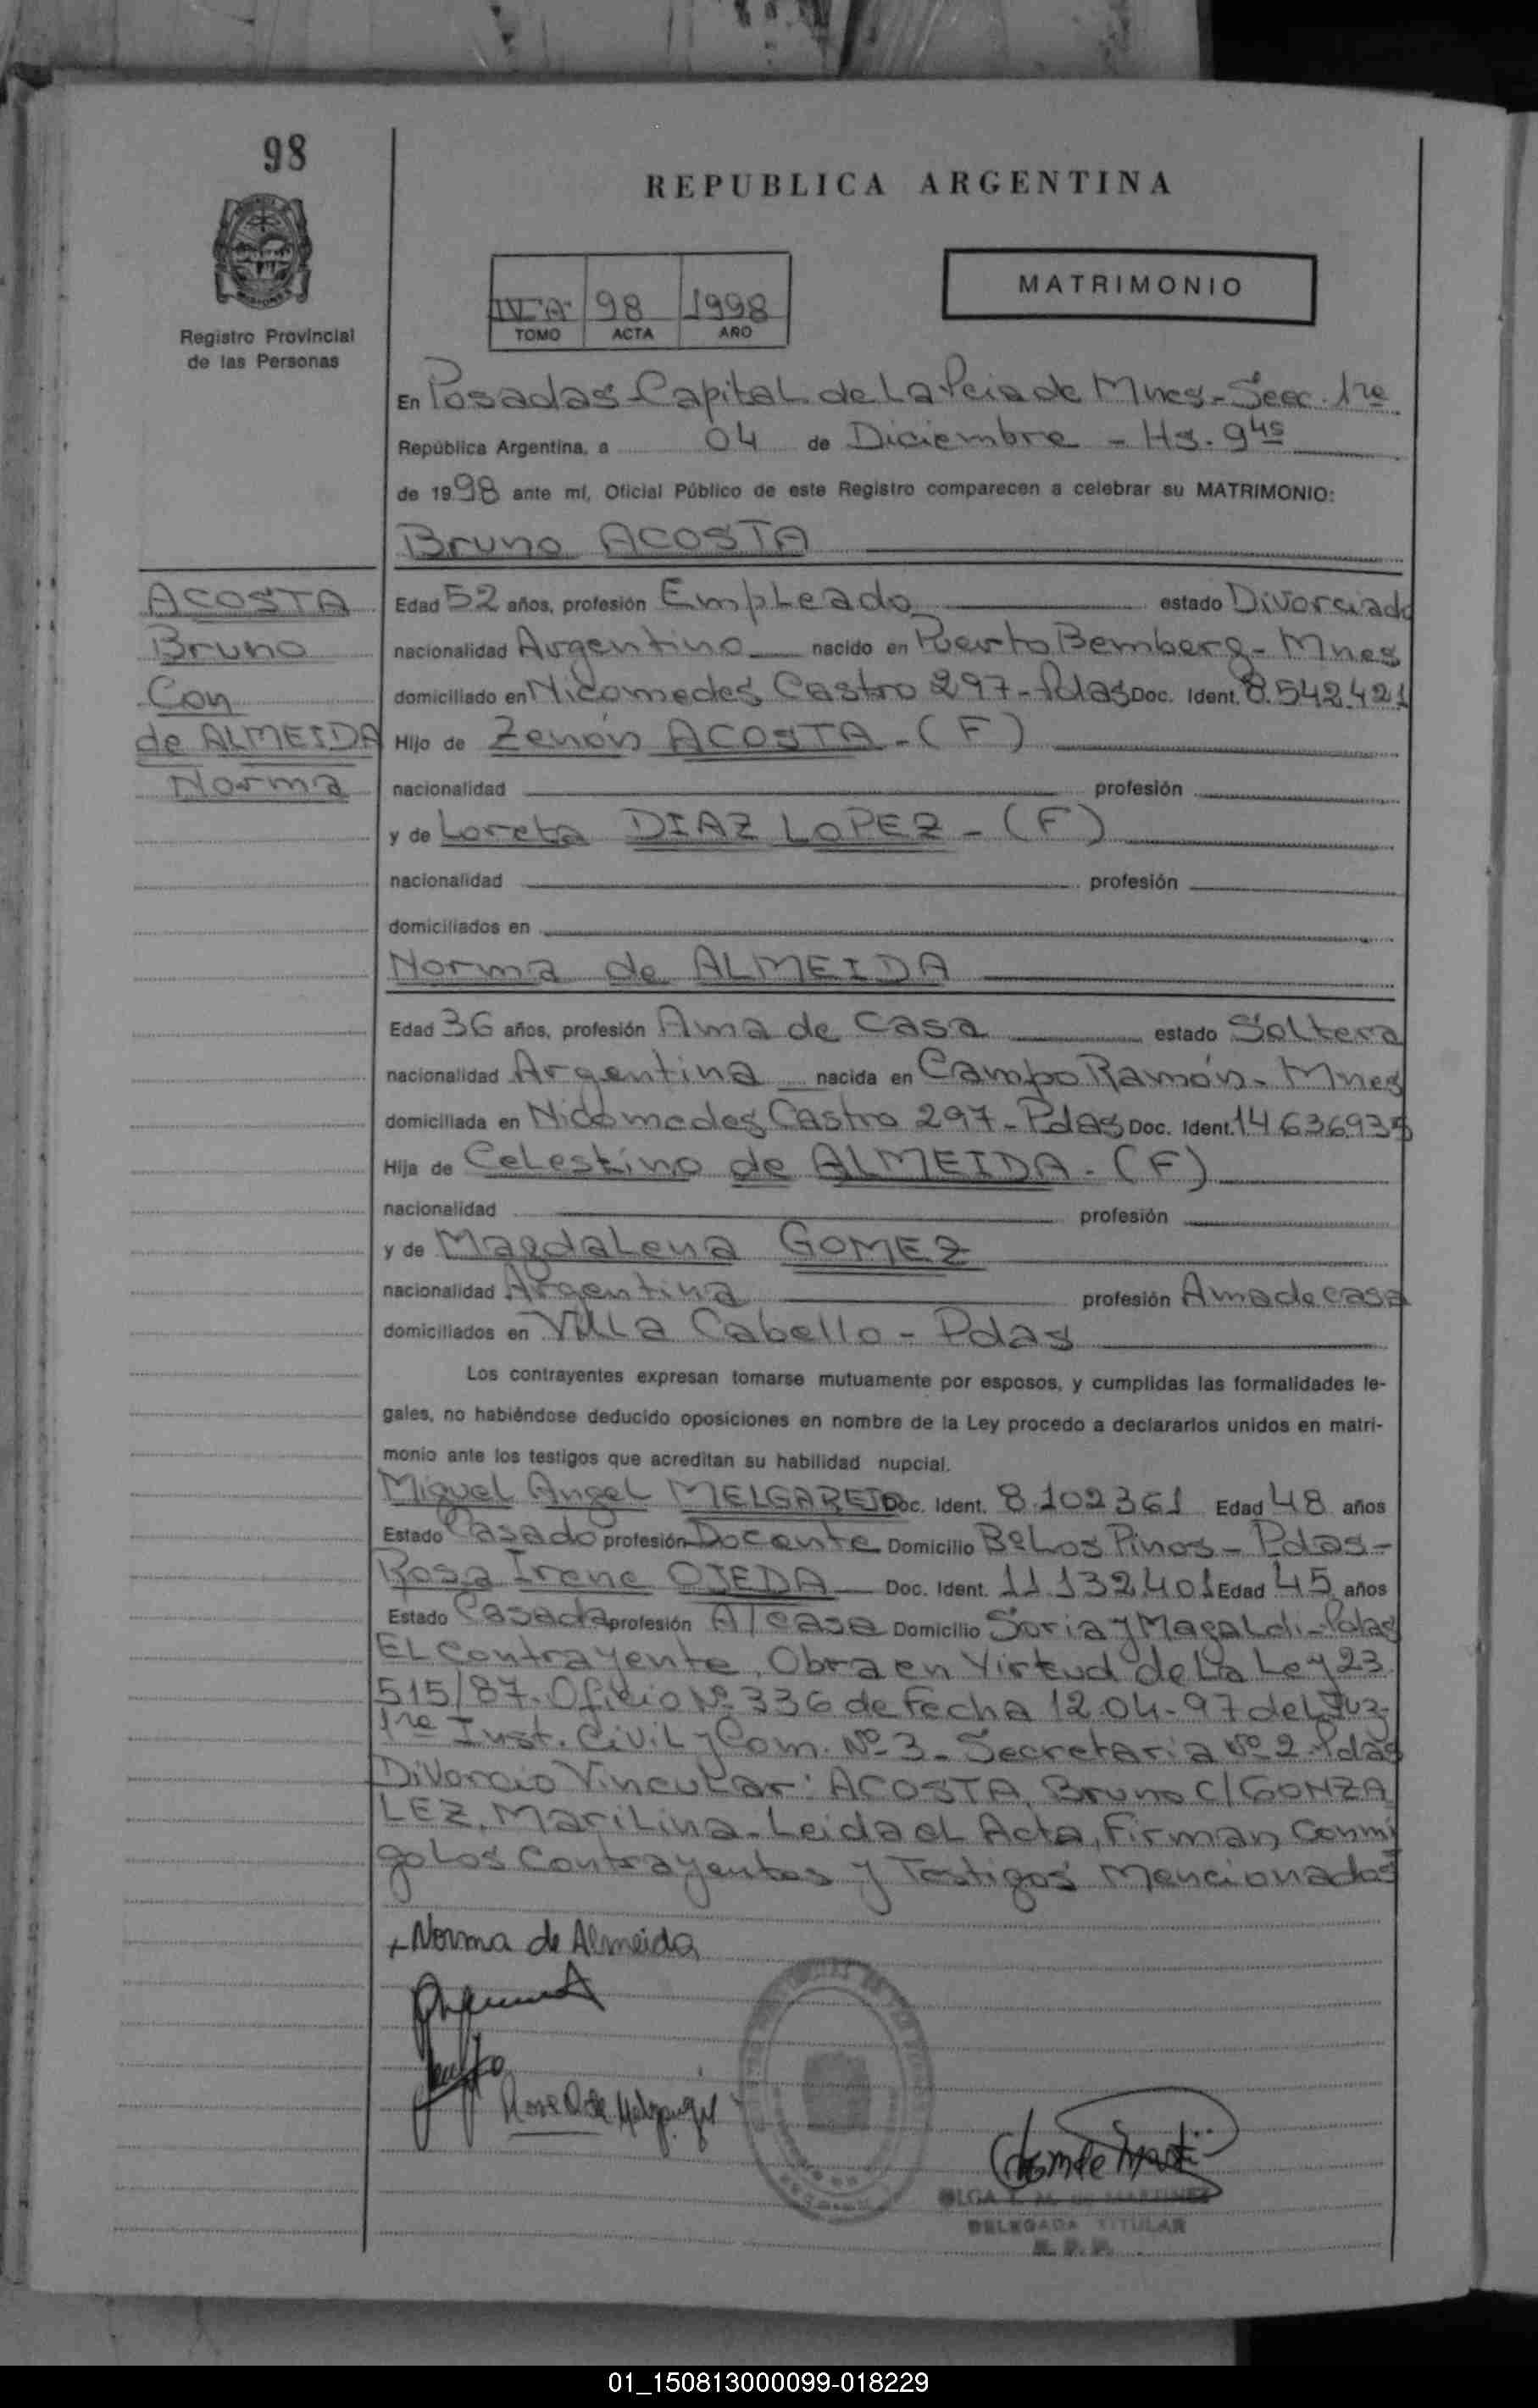 98
REPUBLICA ARGENTINA
MATRIMONIO
IV "A" 98 1998
TOMO ACTA AÑO
Registro Provincial
de las Personas
En Posadas-Capital de La Pcia de Mnes-Secc. 1ra
República Argentina, a 04 de Diciembre - Hs. 9 45
de 1998 ante mí, Oficial Público de este Registro comparecen a celebrar su MATRIMONIO:
Bruno ACOSTA
ACOSTA
Bruno
Con
de ALMEIDA
Norma
Edad 52 años, profesión Empleado estado Divorciado
nacionalidad Argentino nacido en Puerto Bemberg-Mnes
domiciliado en Nicomedes Castro 297-Pdas Doc. Ident. 8.542.421
Hijo de Zenón ACOSTA-(F)
nacionalidad profesión
y de Loreta DIAZ LOPEZ-(F)
nacionalidad profesión
domiciliados en
Norma de ALMEIDA
Edad 36 años, profesión Ama de Casa estado Soltera
nacionalidad Argentina nacida en Campo Ramón-Mnes
domiciliada en Nicomedes Castro 297-Pdas Doc. Ident. 14.636.935
Hija de Celestino de ALMEIDA-(F)
nacionalidad profesión
y de Magdalena GOMEZ
nacionalidad Argentina profesión Ama de casa
domiciliados en Villa Cabello-Pdas
Los contrayentes expresan tomarse mutuamente por esposos, y cumplidas las formalidades le-
gales, no habiéndose deducido oposiciones en nombre de la Ley procedo a declararlos unidos en matri-
monio ante los testigos que acreditan su habilidad nupcial.
Miguel Angel MELGAREJO Doc. Ident. 8.102.361 Edad 48 años
Estado Casado profesión Docente Domicilio Bº Los Pinos-Pdas-
Rosa Irene OJEDA Doc. Ident. 11.132.401 Edad 45 años
Estado Casada profesión A/casa Domicilio Soria y Magaldi-Pdas
El Contrayente, Obra en Virtud de La Ley 23
515/87-Oficio Nº 336 de Fecha 12-04-97 del Juz.
1ra Inst. Civil y Com. Nº 3-Secretaria Nº 2-Pdas
Divorcio Vincular: ACOSTA, Bruno C/GONZA
LEZ, Marilina-Leida el Acta, Firman Conmi
go Los Contrayentes y Testigos Mencionados
Norma de Almeida
OLGA DE MARTINEZ
DELEGADA TITULAR
R. P. P.
01_150813000099-018229